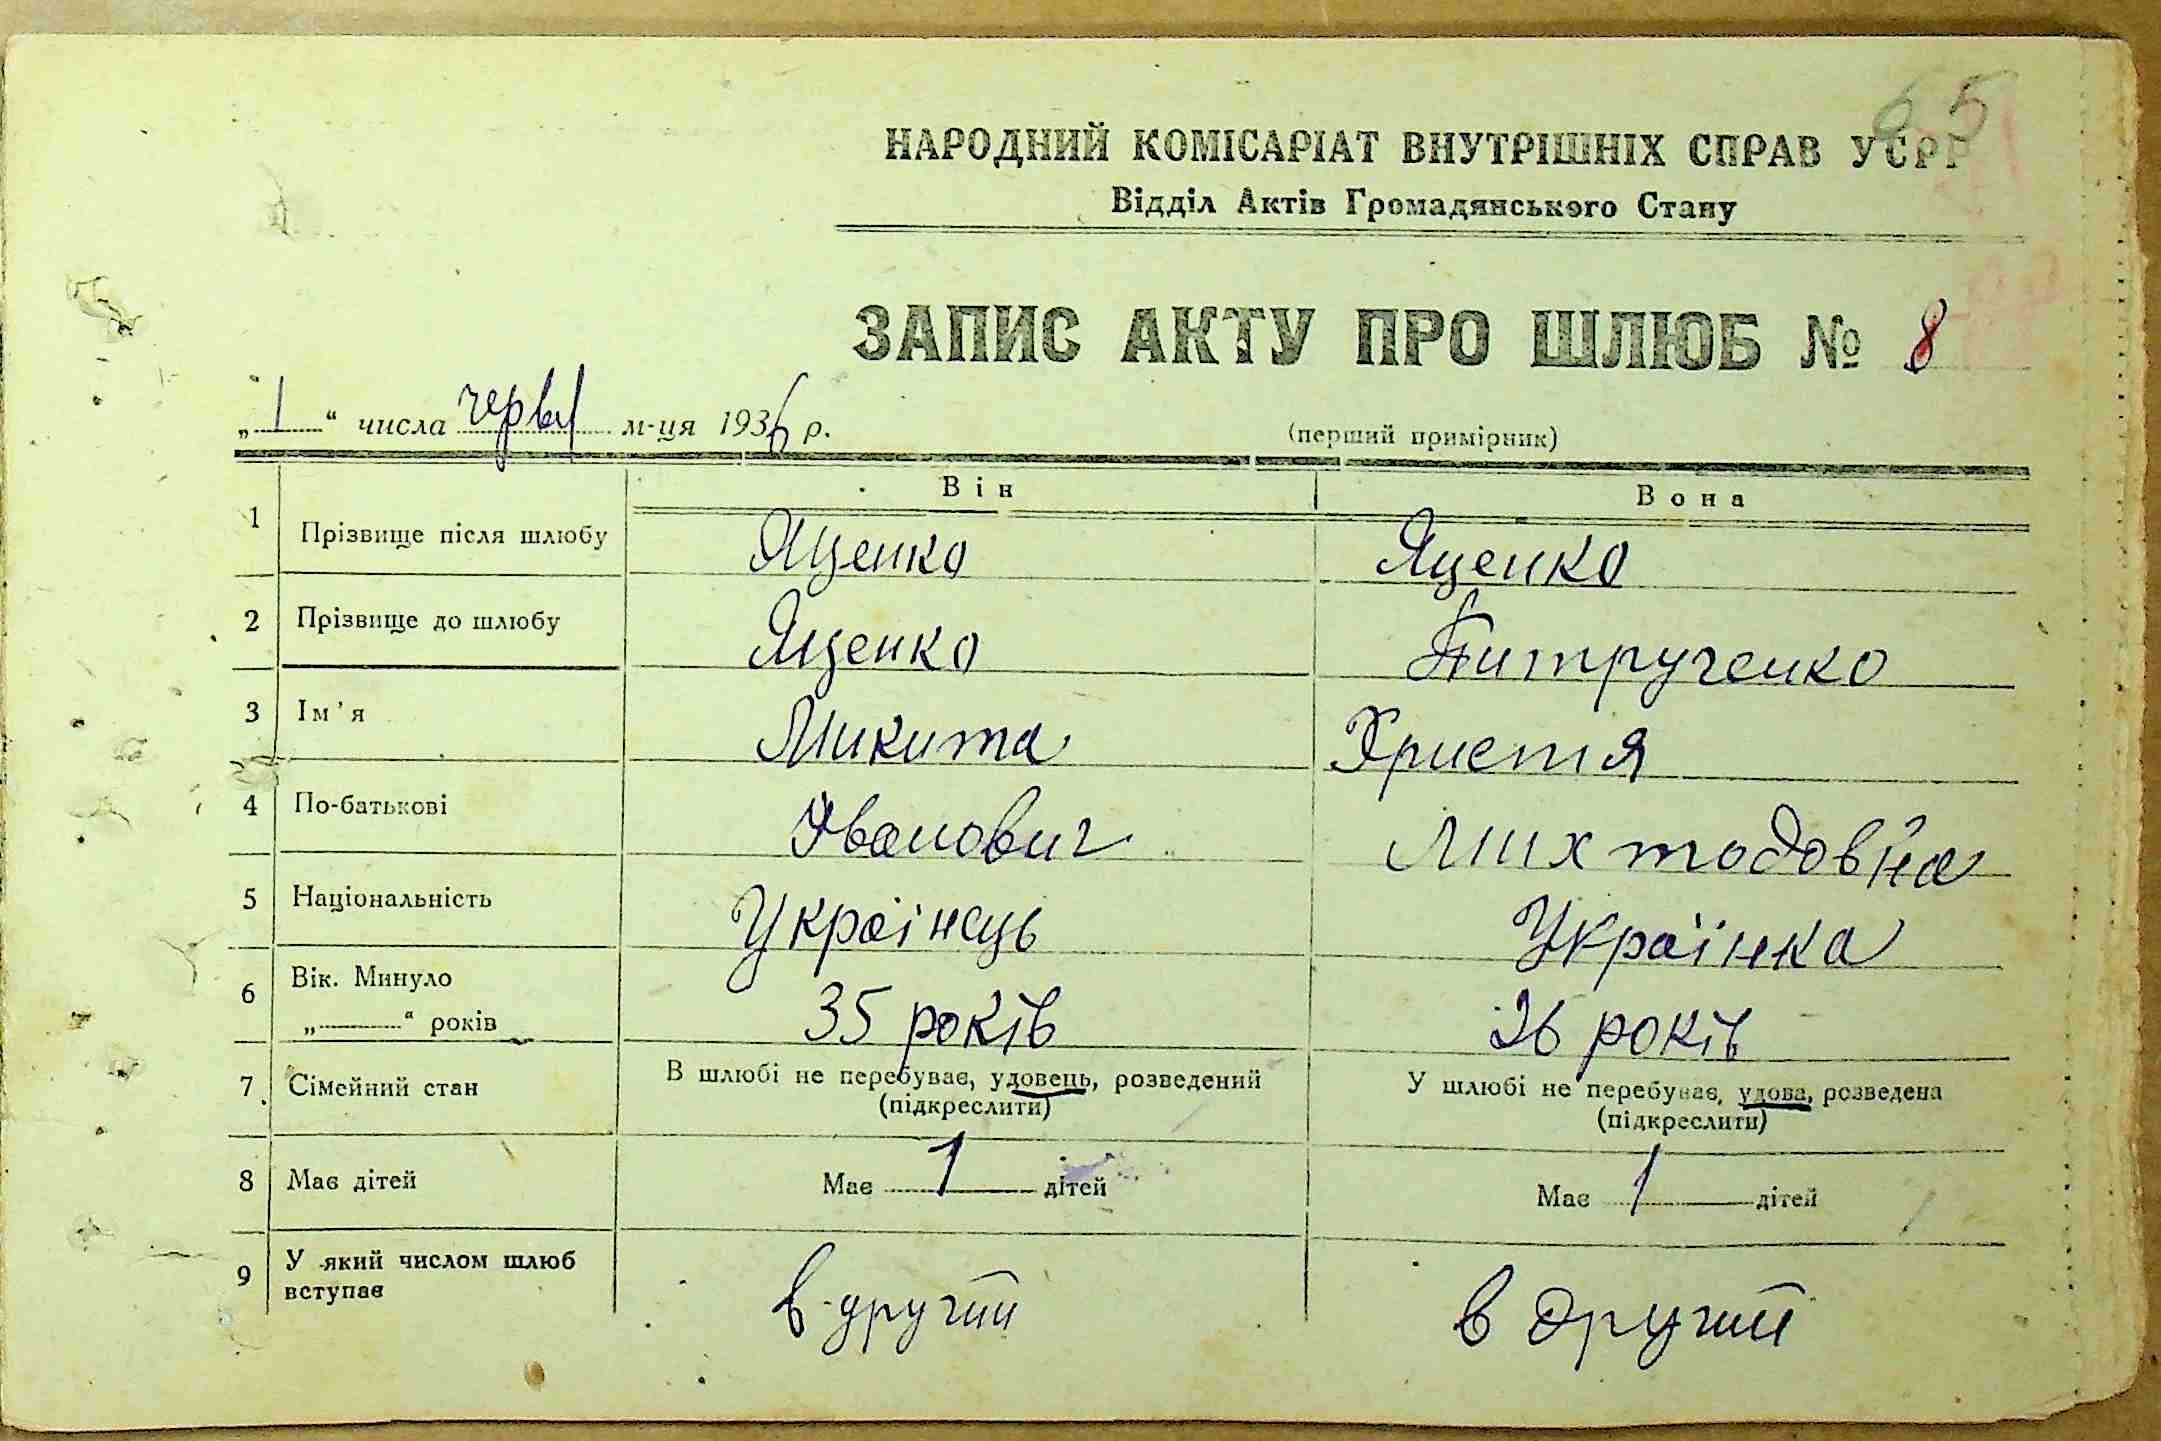 65
НАРОДНИЙ КОМІСАРІАТ ВНУТРІШНІХ СПРАВ УСРР
Відділ Актів Громадянського Стану
ЗАПИС АКТУ ПРО ШЛЮБ № 8
„1“ числа м-ця 1936 р. (перший примірник)
Він Вона
1 Прізвище після шлюбу Яценко Яценко
2 Прізвище до шлюбу Яценко Питрученко
3 Ім'я Микита Христя
4 По-батькові Іванович
5 Національність Українець Українка
6 Вік. Минуло „ “ років 35 років 26 років
7 Сімейний стан В шлюбі не перебуває, удовець, розведений (підкреслити) У шлюбі не перебуває, удова, розведена (підкреслити)
8 Має дітей Має 1 дітей Має 1 дітей
9 У який числом шлюб вступає в другий в другий